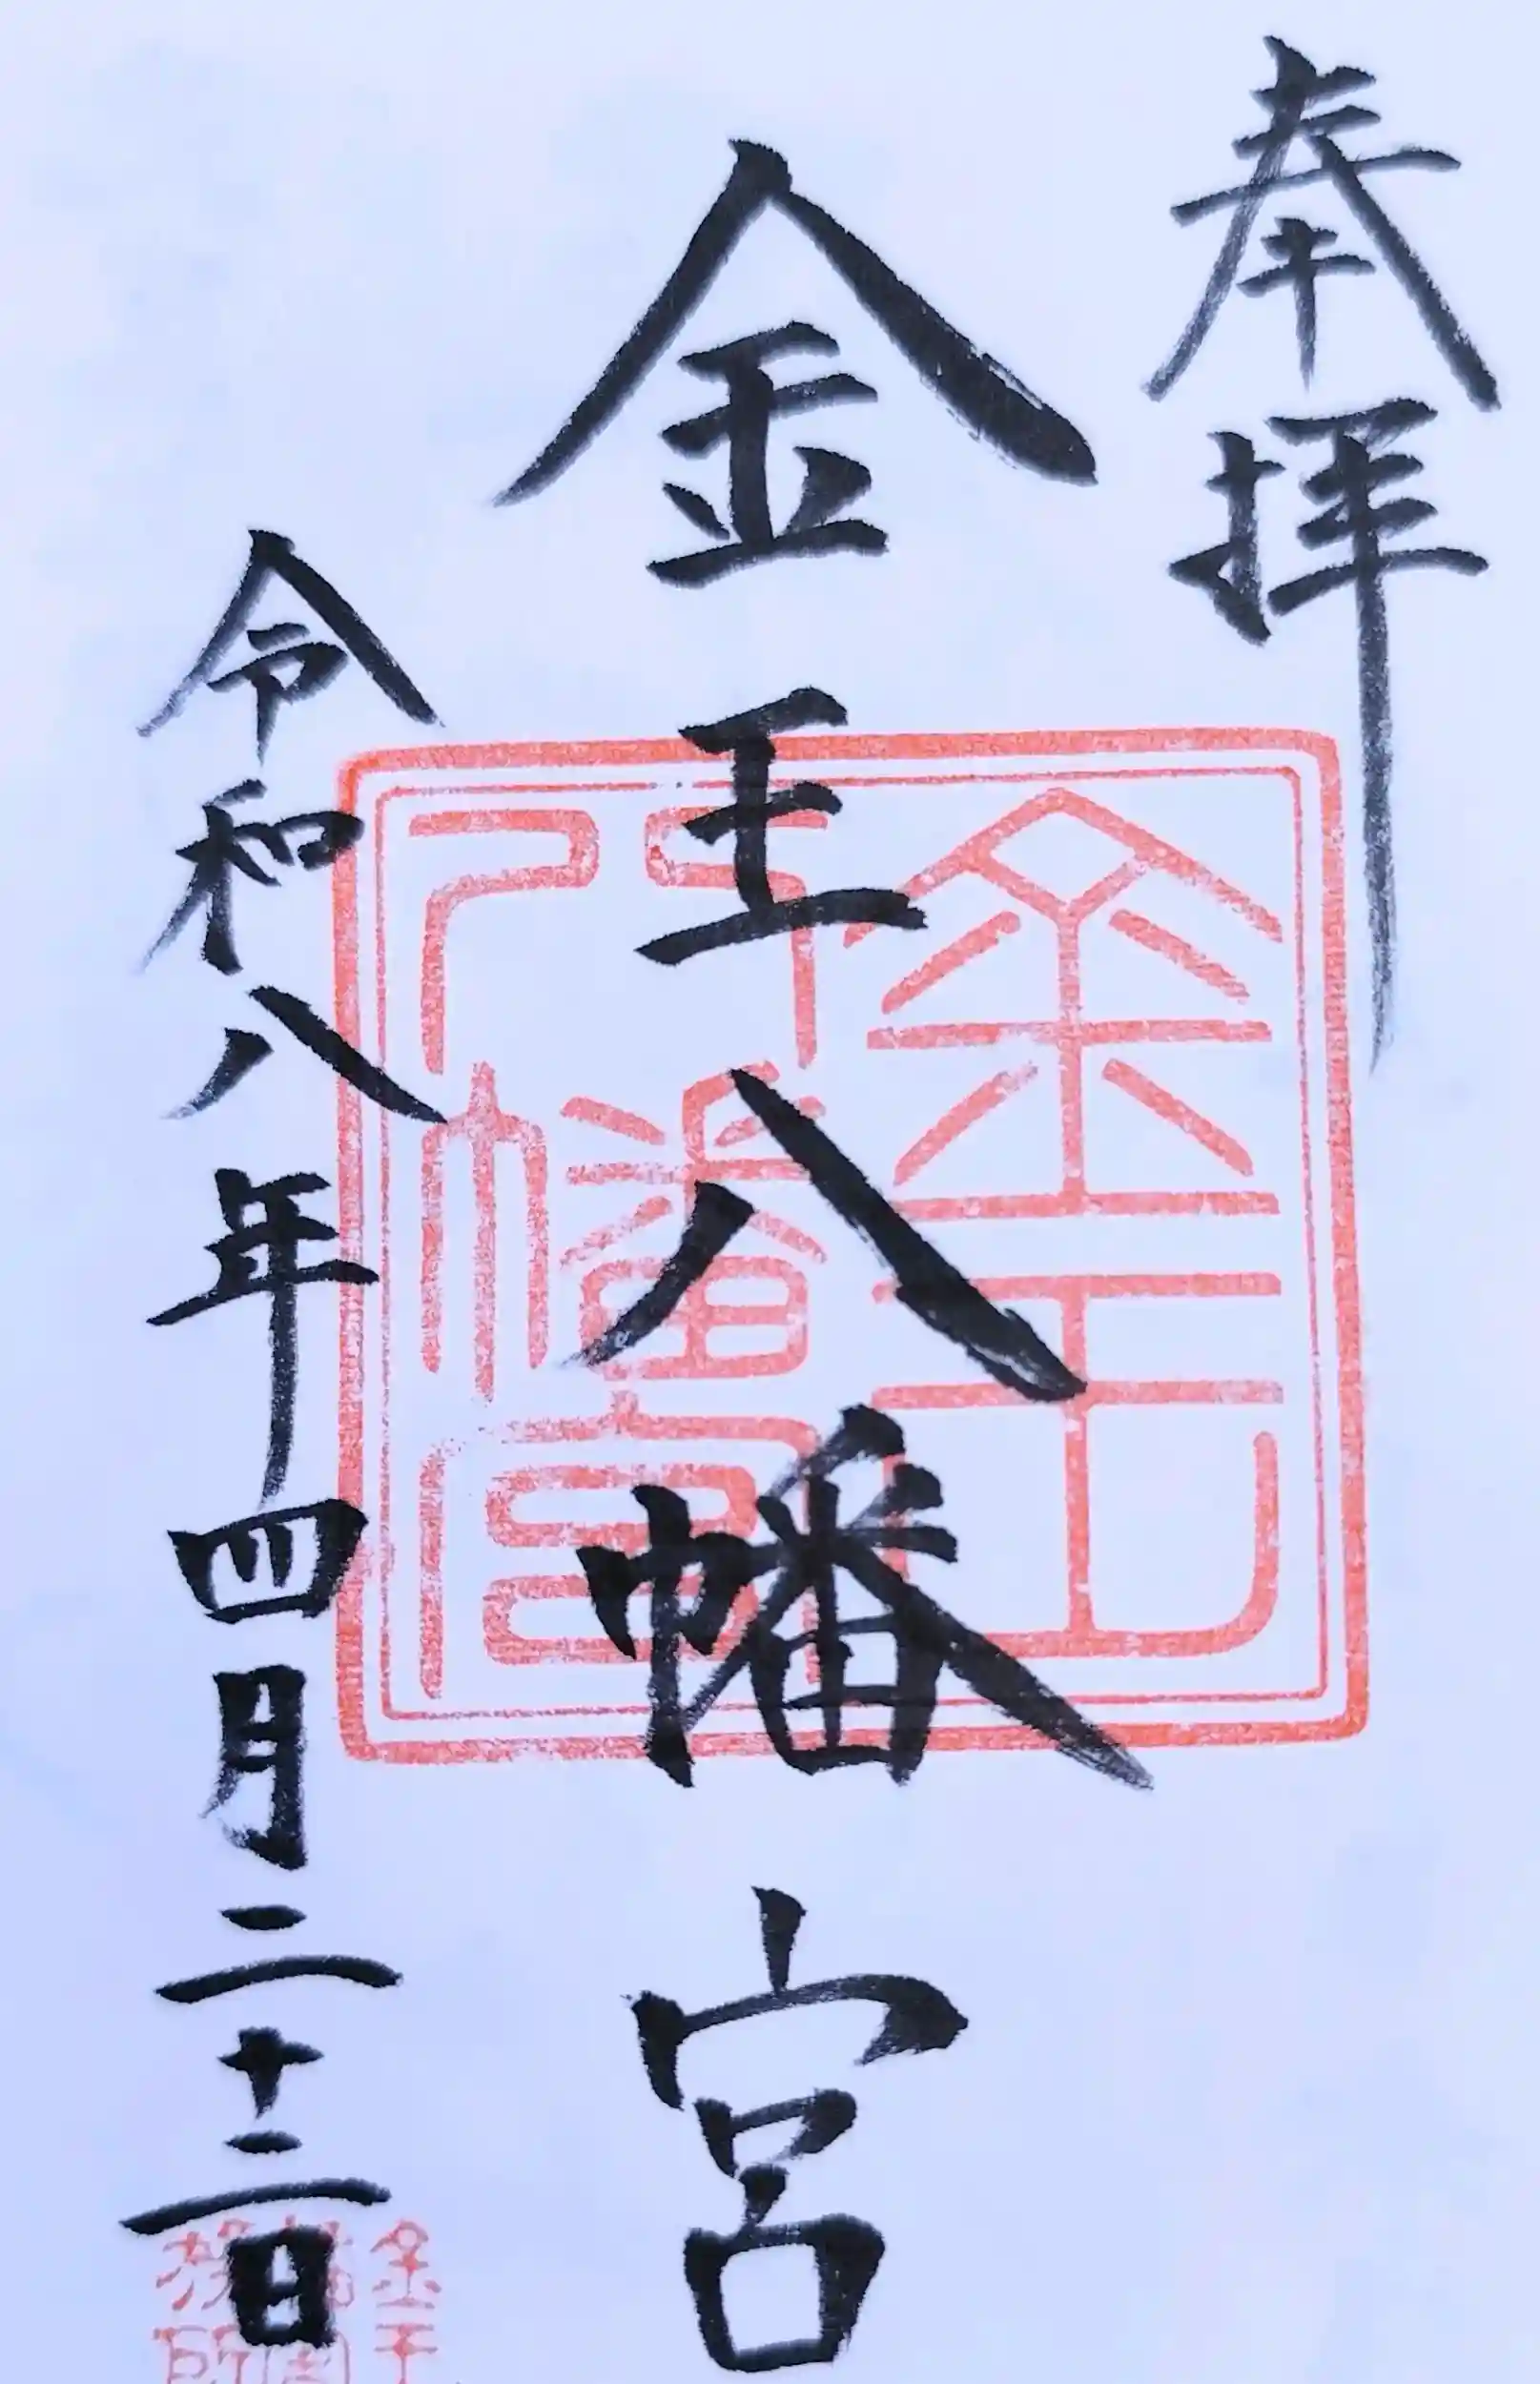 奉拝
金王八幡宮
令和八年四月二十二日
金王
八幡宮
金王